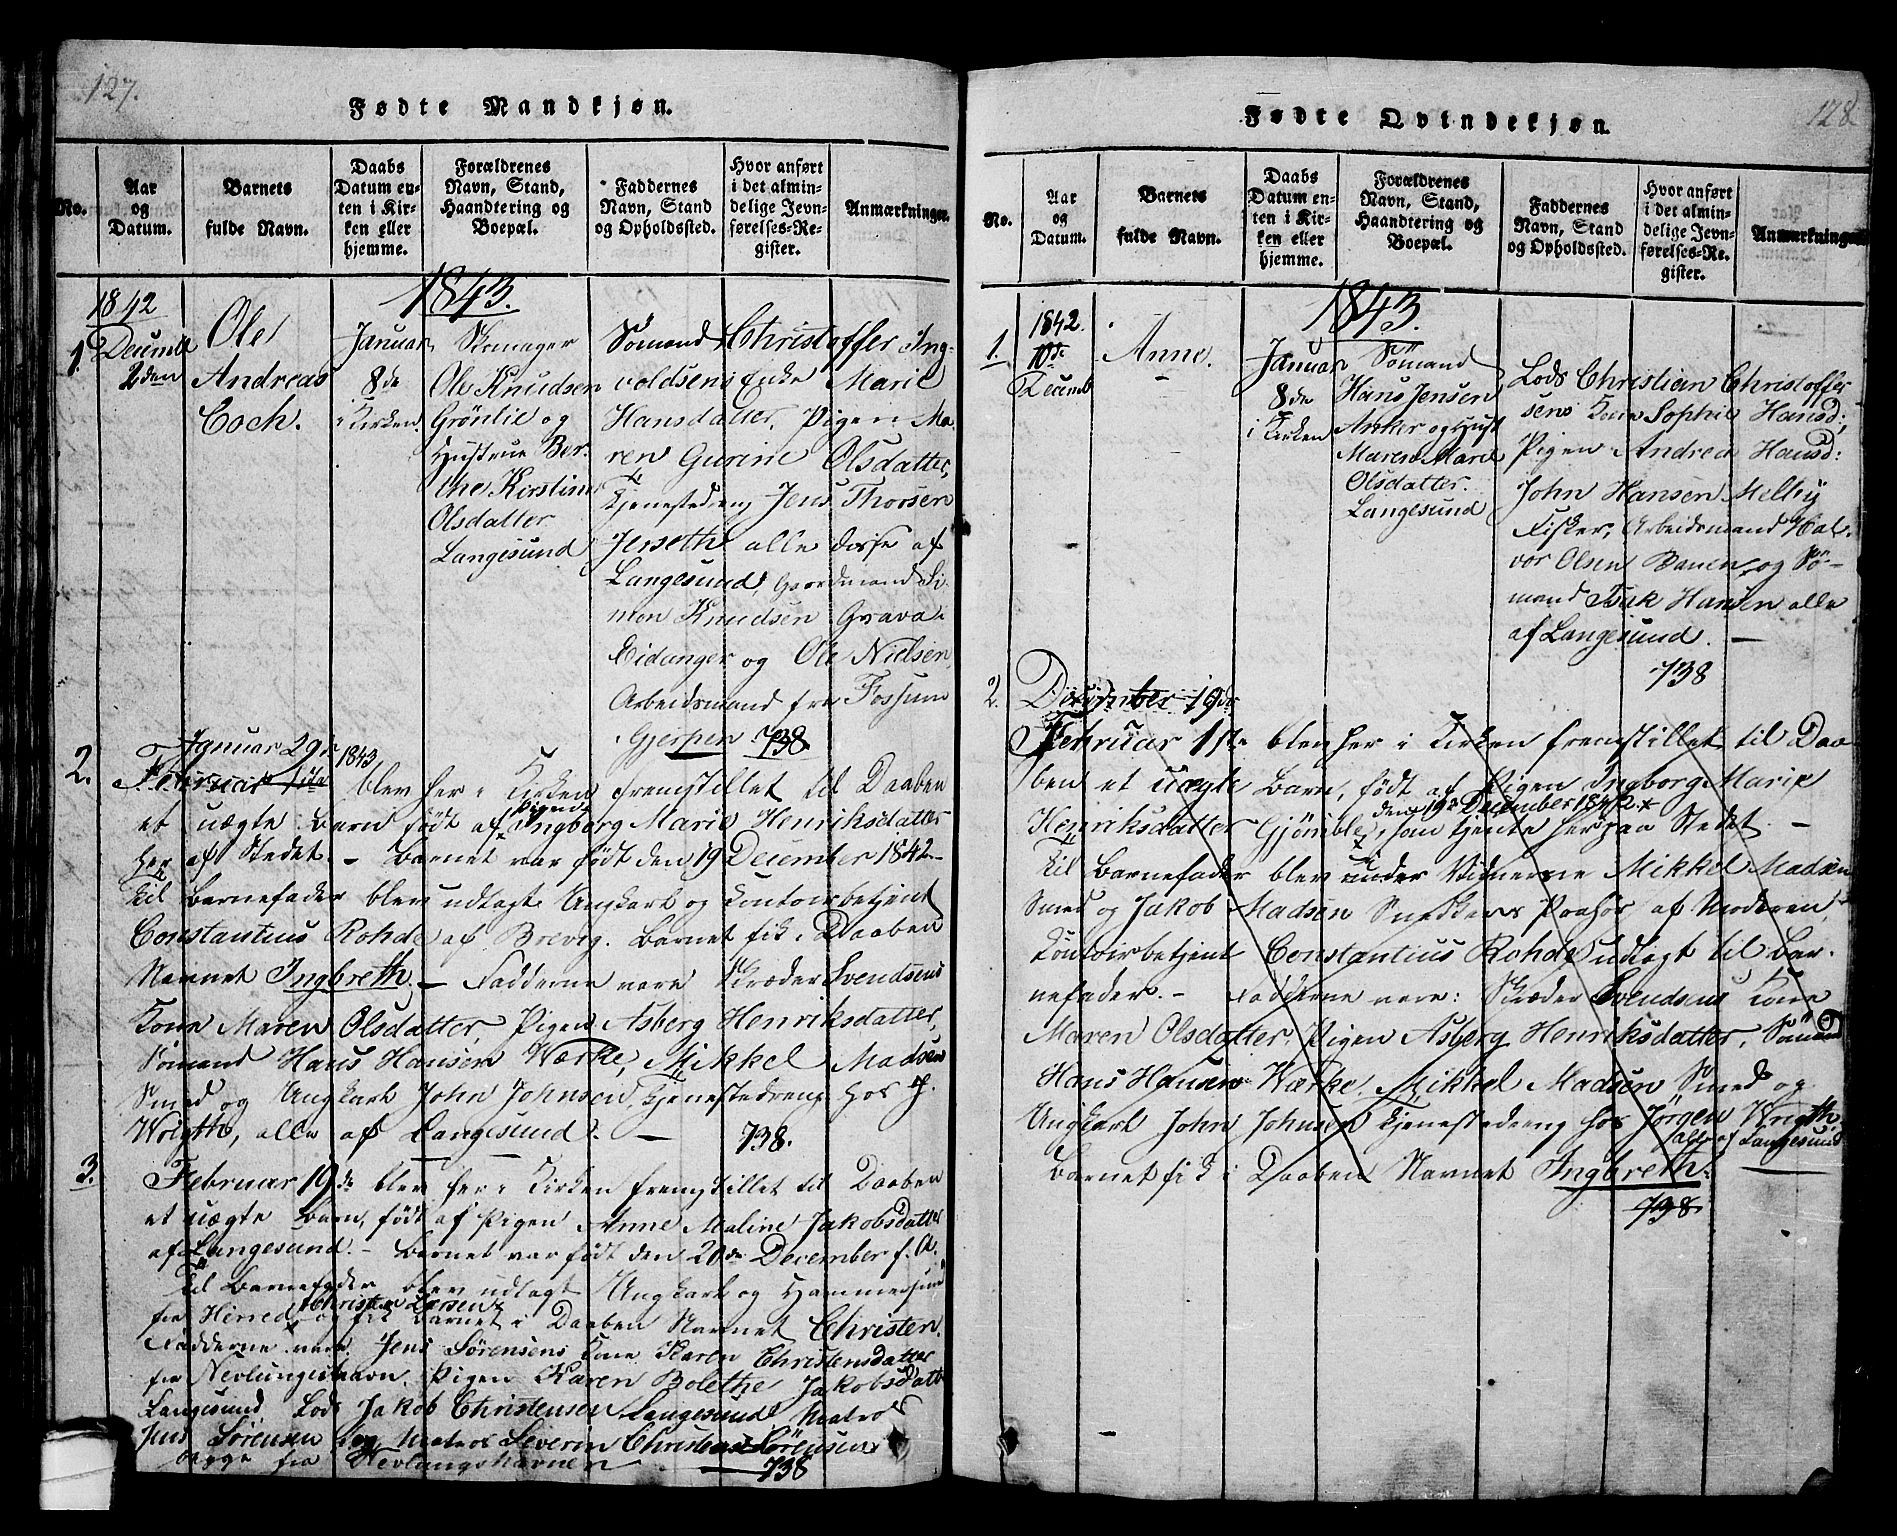 127.
Fødte Mandkjøn.
No.
Aar og Datum.
Barnets fulde Navn.
Daabs Datum enten i Kirken eller hjemme.
Forældrenes Navn, Stand, Haandtering og Boepæl.
Faddernes Navn, Stand og Opholdssted.
Hvor anført i det almindelige Jevnførelses-Register.
Anmærkninger.
1843.
1842
1.
Decembr
2den
Ole
Andreas
Coch.
Januar
8de
i Kirken.
Skomager
Ole Knudsen
Grönlie og
Hustrue Ber-
the Kirstine
Olsdatter
Langesund
Sømand Christoffer Ing-
voldsens Enke Marie
Hansdatter, Pigen Ma-
ren Gurine Olsdatter,
Tjenestedreng Jens Thorsen
Jerseth alle disse af
Langesund, Gaardmand Si-
mon Knudsen Grava
Eidanger og Ole Nielsen
Arbeidsmand fra Fossum
Gjerpen 738.
2.
Januar 29de 1843
Februar 1ste blev her i Kirken fremstillet til Daaben
et uægte Barn født af Pigen Ingborg Marie Henriksdatter
her af Stedet. – Barnet var født den 19 December 1842 –
Til Barnefader blev udlagt Ungkarl og Contoirbetjent
Constantius Rohde af Brevig. Barnet fik i Daaben
Navnet Ingbreth. – Fadderne vare Skræder Svendsens
Kone Maren Olsdatter, Pigen Asberg Henriksdatter,
Sømand Hans Hansen Værke, Mikkel Madsen
Smed og Ungkarl John Johnsen, Tjenestedreng hos J.
Wrigth, alle af Langesund. – 738.
3.
Februar 19de blev her i Kirken fremstillet til Daaben
et uægte Barn, født af Pigen Anne Maline Jakobsdatter
af Langesund. – Barnet var født den 20de December f. A.
Til Barnefader blev udlagt Ungkarl og Hammersmed
Christen Larsen
fra og fik Barnet i Daaben Navnet Christen.
Fadderne vare Jens Sørensens Kone Karen Christensdatter
fra Nevlungshavn, Pigen Karen Bolethe Jakobsdatt
Langesund Lods Jakob Christensen Langesund, Matros
Jens Sørensen og Matros Severin Christen Sørensen,
begge fra Nevlungshavnen – 738
128.
Fødte Qvindekjøn.
No.
Aar og Datum.
Barnets fulde Navn.
Daabs Datum enten i Kirken eller hjemme.
Forældrenes Navn, Stand, Haandtering og Boepæl.
Faddernes Navn, Stand og Opholdssted.
Hvor anført i det almindelige Jevnførelses-Register.
Anmærkninger
1843.
1842.
1.
10de
Decemb
Anne.
Januar
8de
i Kirken
Sömand
Hans Jensen
Anker og Hust
Maren Marie
Olsdatter.
Langesund
Lods Christian Christoffer
sens Kone Sophie Hansd:,
Pigen Andrea Hansd:
John Hansen Melbÿ
Fisker, Arbeidsmand Hal-
vor Olsen og Sö-
mand Isak Hansen alle
af Langesund. –
738
2.
December 19de
Februar 1ste blev her i Kirken fremstillet til Daa-
ben et uægte Barn, født af Pigen Ingborg Marie
den 19de December 1842
Henriksdatter Gjömble, som tjente her paa Stedet. –
Til Barnefader blev under Vidnerne Mikkel Madsen
Smed og Jakob Madsen Snedkers Paahör af Moderen,
Contoirbetjent Constantius Rohde udlagt til Bar-
nefader. – Fadderne vare: Skræder Svendsens Kone
Maren Olsdatter, Pigen Asberg Henriksdatter, Sömand
Hans Hansen Værke, Mikkel Madsen Smed og
Ungkarl John Johnsen Tjenestedreng hos Jörgen Wrigth,
alle af Langesund
Barnet fik i Daaben Navnet Ingbreth.
738.